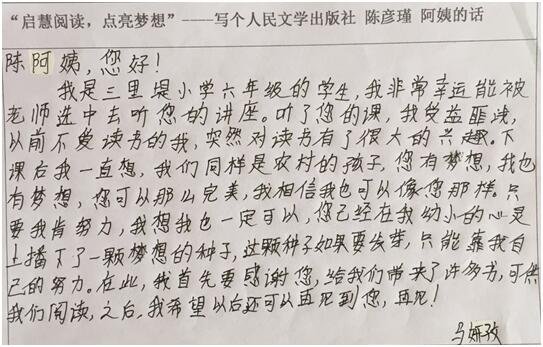 “启慧阅读，点亮梦想”——写个人民文学出版社 陈彦瑾 阿姨的话
陈阿姨，您好！
我是三里堤小学六年级的学生，我非常幸运能被
老师选中去听您的讲座。听了您的课，我受益匪浅，
以前不爱读书的我，突然对读书有了很大的兴趣。下
课后我一直想，我们同样是农村的孩子，您有梦想，我也
有梦想，您可以那么完美，我相信我也可以像您那样。只
要我肯努力，我想我也一定可以，您已经在我幼小的心灵
上播下了一颗梦想的种子，这颗种子如果要发芽，只能靠我自
己的努力。在此，我首先要感谢您，给我们带来了许多书，可供
我们阅读，之后，我希望以后还可以再见到您，再见！
马妍孜